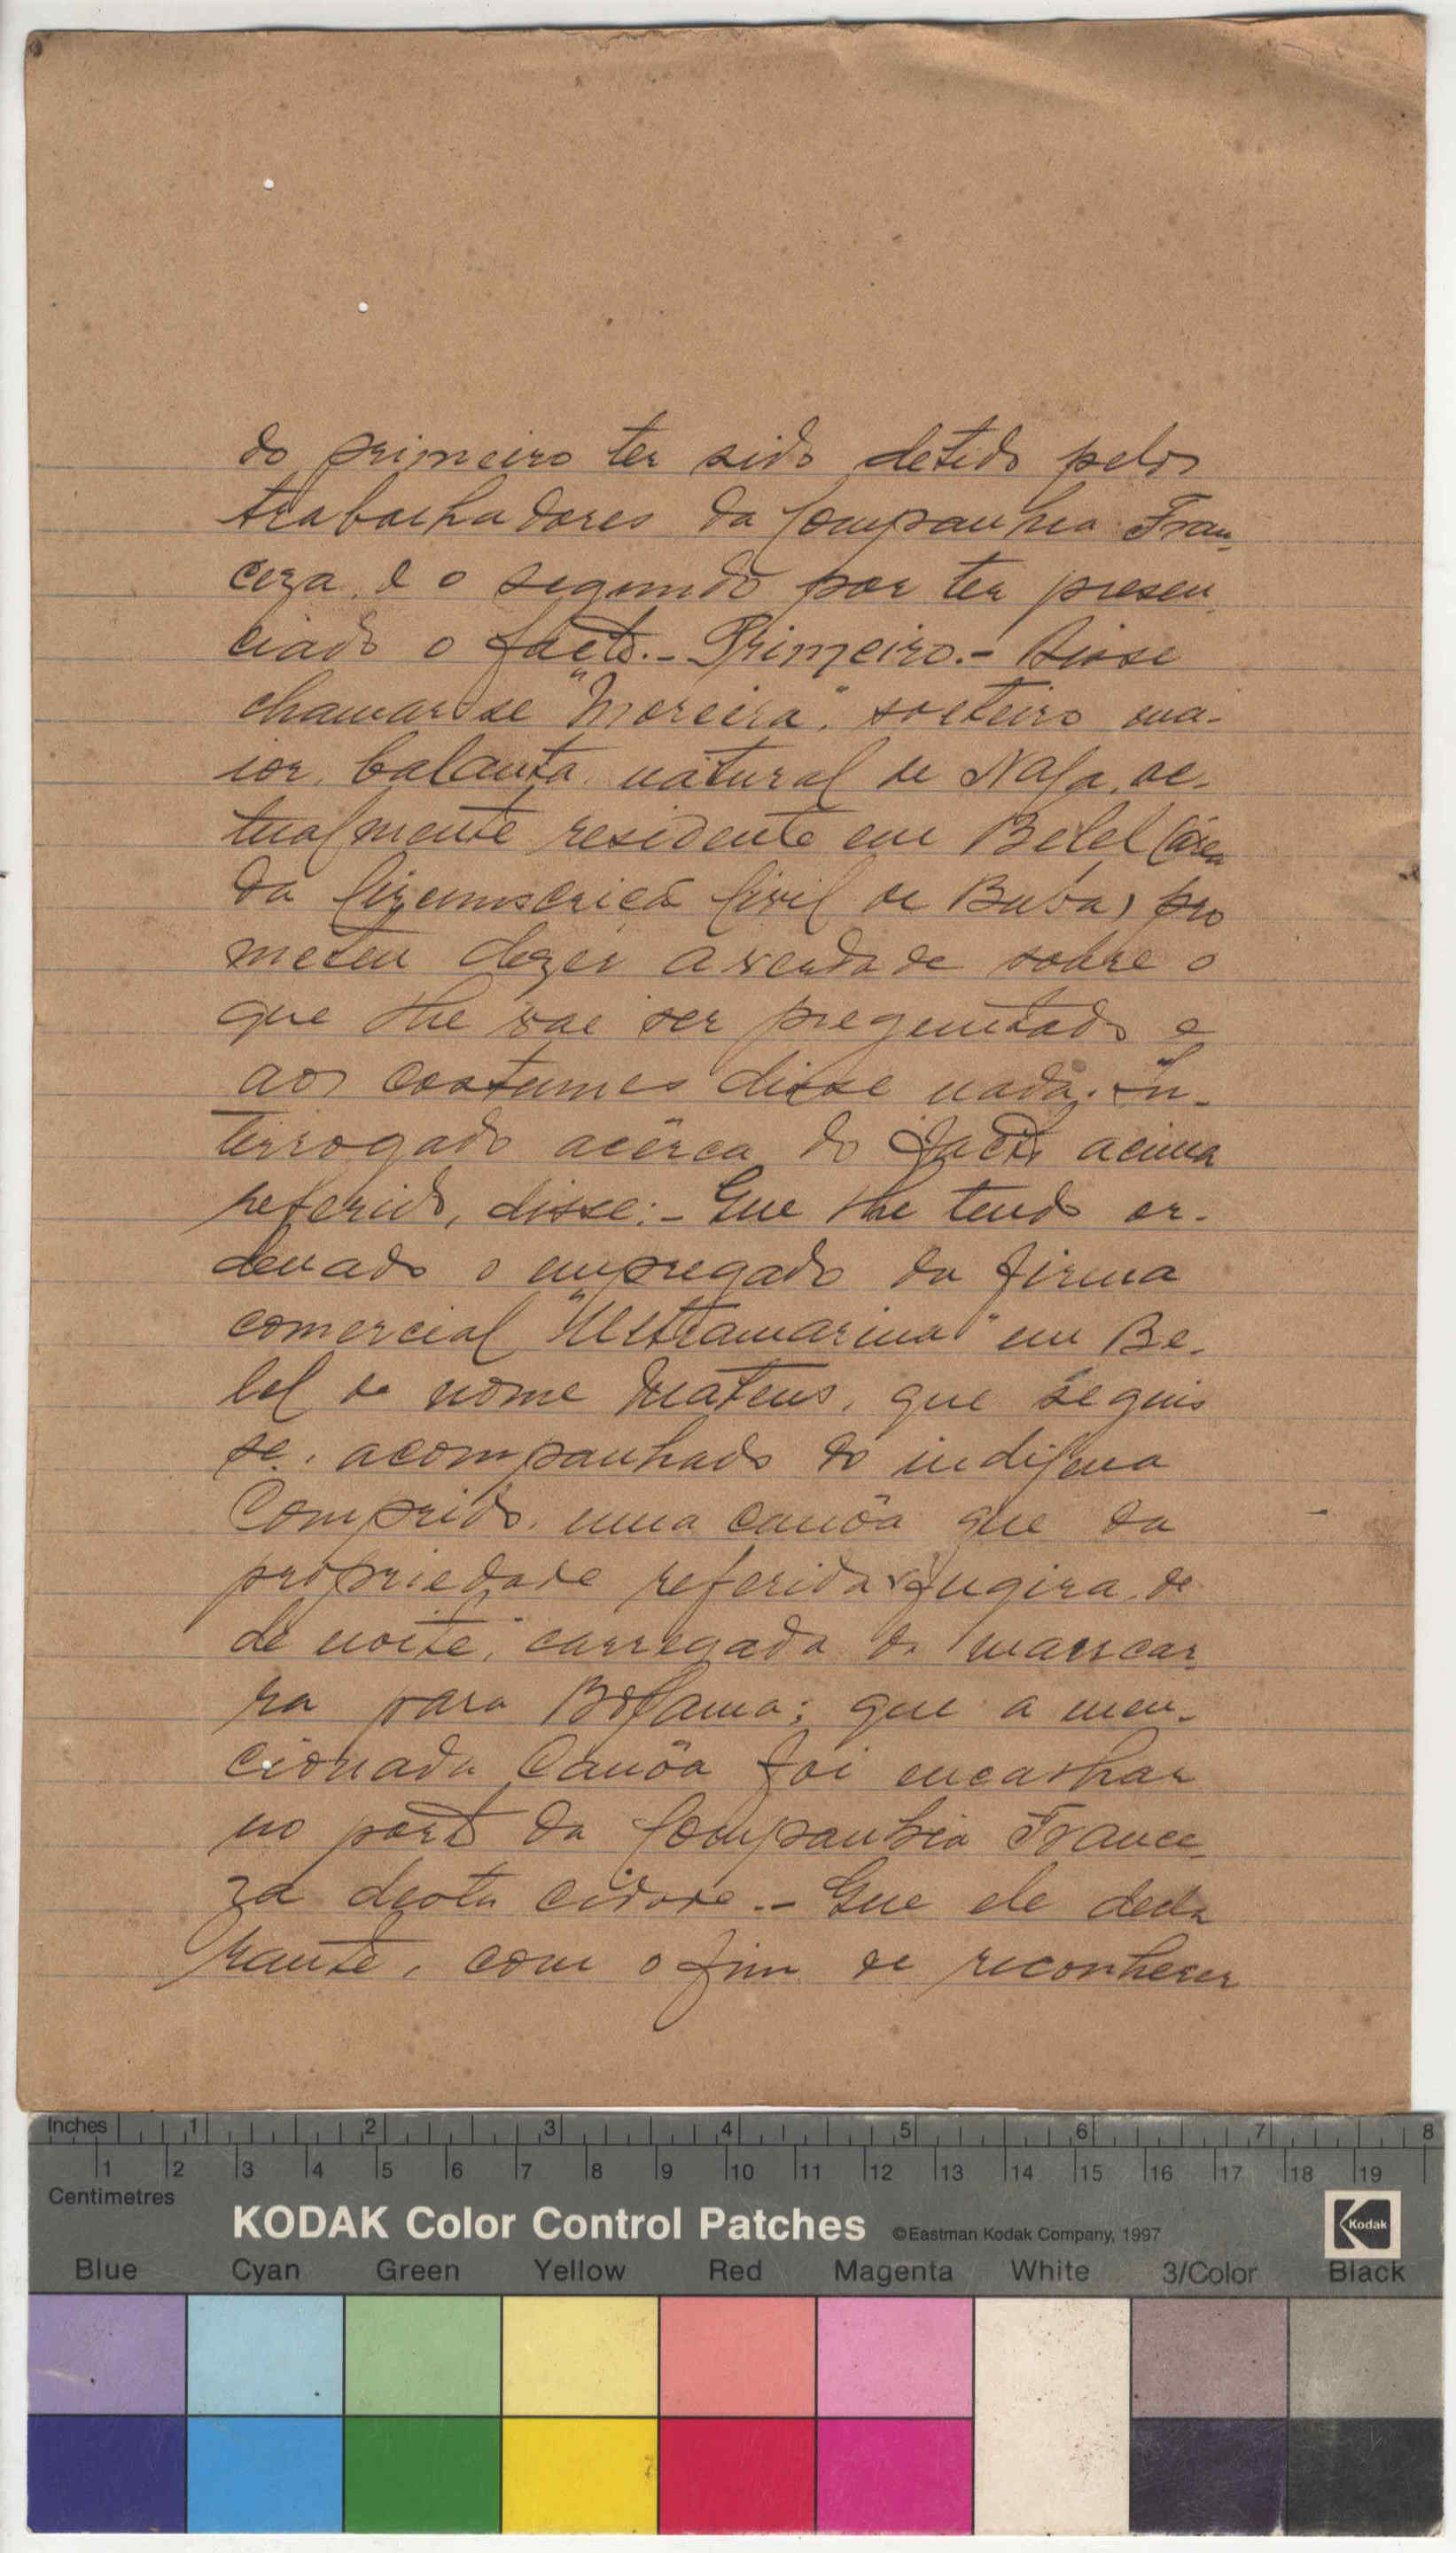 do primeiro ter sido detido pelos
trabalhadores da Companhia Fran-
ceza, e o segundo por ter presen-
ciado o facto.- Primeiro.- Disse
chamar-se "Moreira", solteiro, ma-
ior, balanta, natural de Nafa, ac-
tualmente residente em Belel (área
da Circumscrição Civil de Buba) pro
meteu dizer a verdade sobre o
que lhe vai ser preguntado e
aos costumes disse nada. In-
terrogado acêrca do facto acima
referido, disse:- Que lhe tendo or-
denado o empregado da firma
comercial "Ultramarina" em Be-
lel de nome Mateus, que seguis
se, acompanhado do indigena
Comprido, uma canôa que da
propriedade referida fugira de
de noite, carregada de mancar-
ra para Bolama; que a men-
cionada canôa foi encalhar
no porto da Companhia France-
za desta cidade.- Que ele decla
rante, com o fim de reconhecer
Inches 1 2 3 4 5 6 7 8
1 2 3 4 5 6 7 8 9 10 11 12 13 14 15 16 17 18 19
Centimetres
KODAK Color Control Patches ©Eastman Kodak Company, 1997 Kodak
Blue Cyan Green Yellow Red Magenta White 3/Color Black